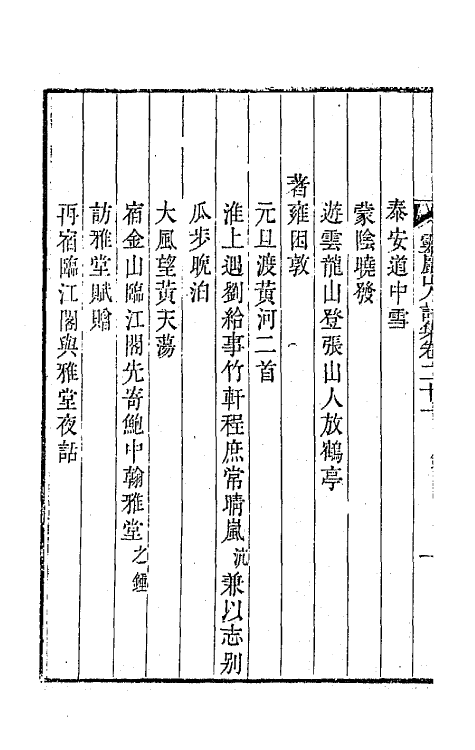 靈巖山人詩集卷二十一
一
泰安道中雪
蒙陰曉發
遊雲龍山登張山人放鶴亭
著雍困敦
元旦渡黃河二首
淮上遇劉給事竹軒程庶常晴嵐沆兼以志別
瓜步晚泊
大風望黃天蕩
宿金山臨江閣先寄鮑中翰雅堂之鍾
訪雅堂賦贈
再宿臨江閣與雅堂夜話